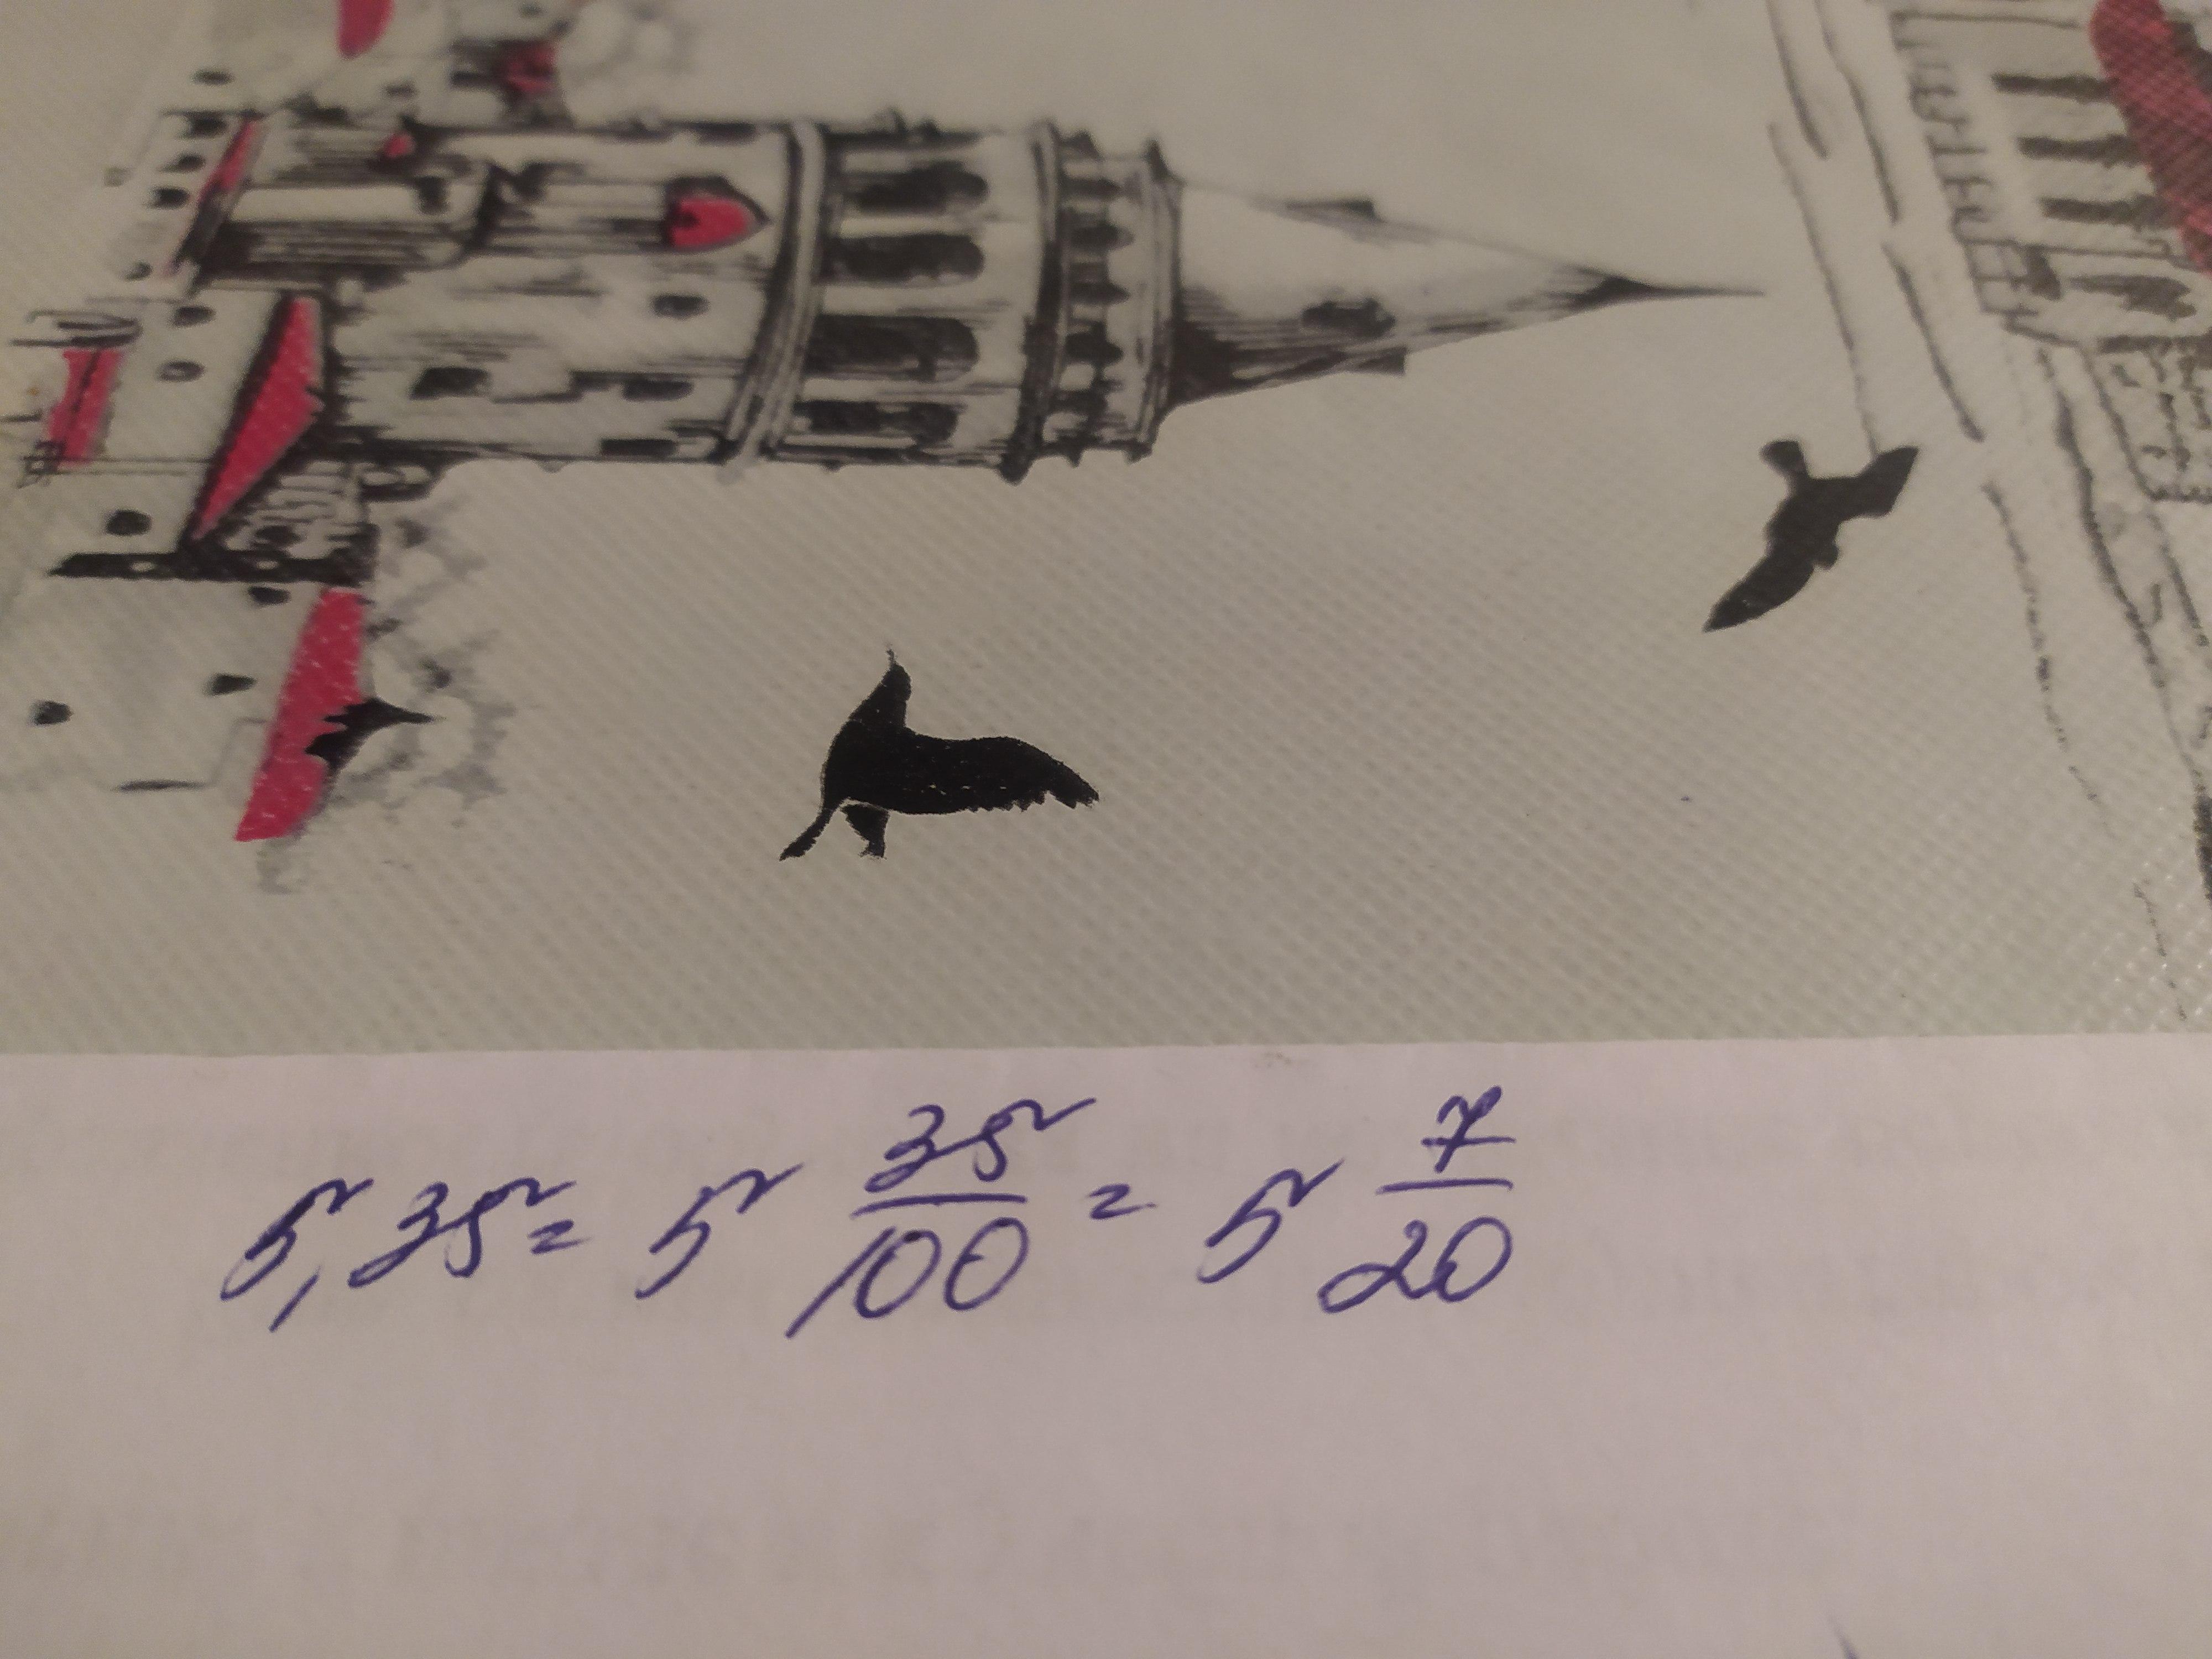 5,35 = 5 35/100 = 5 7/20